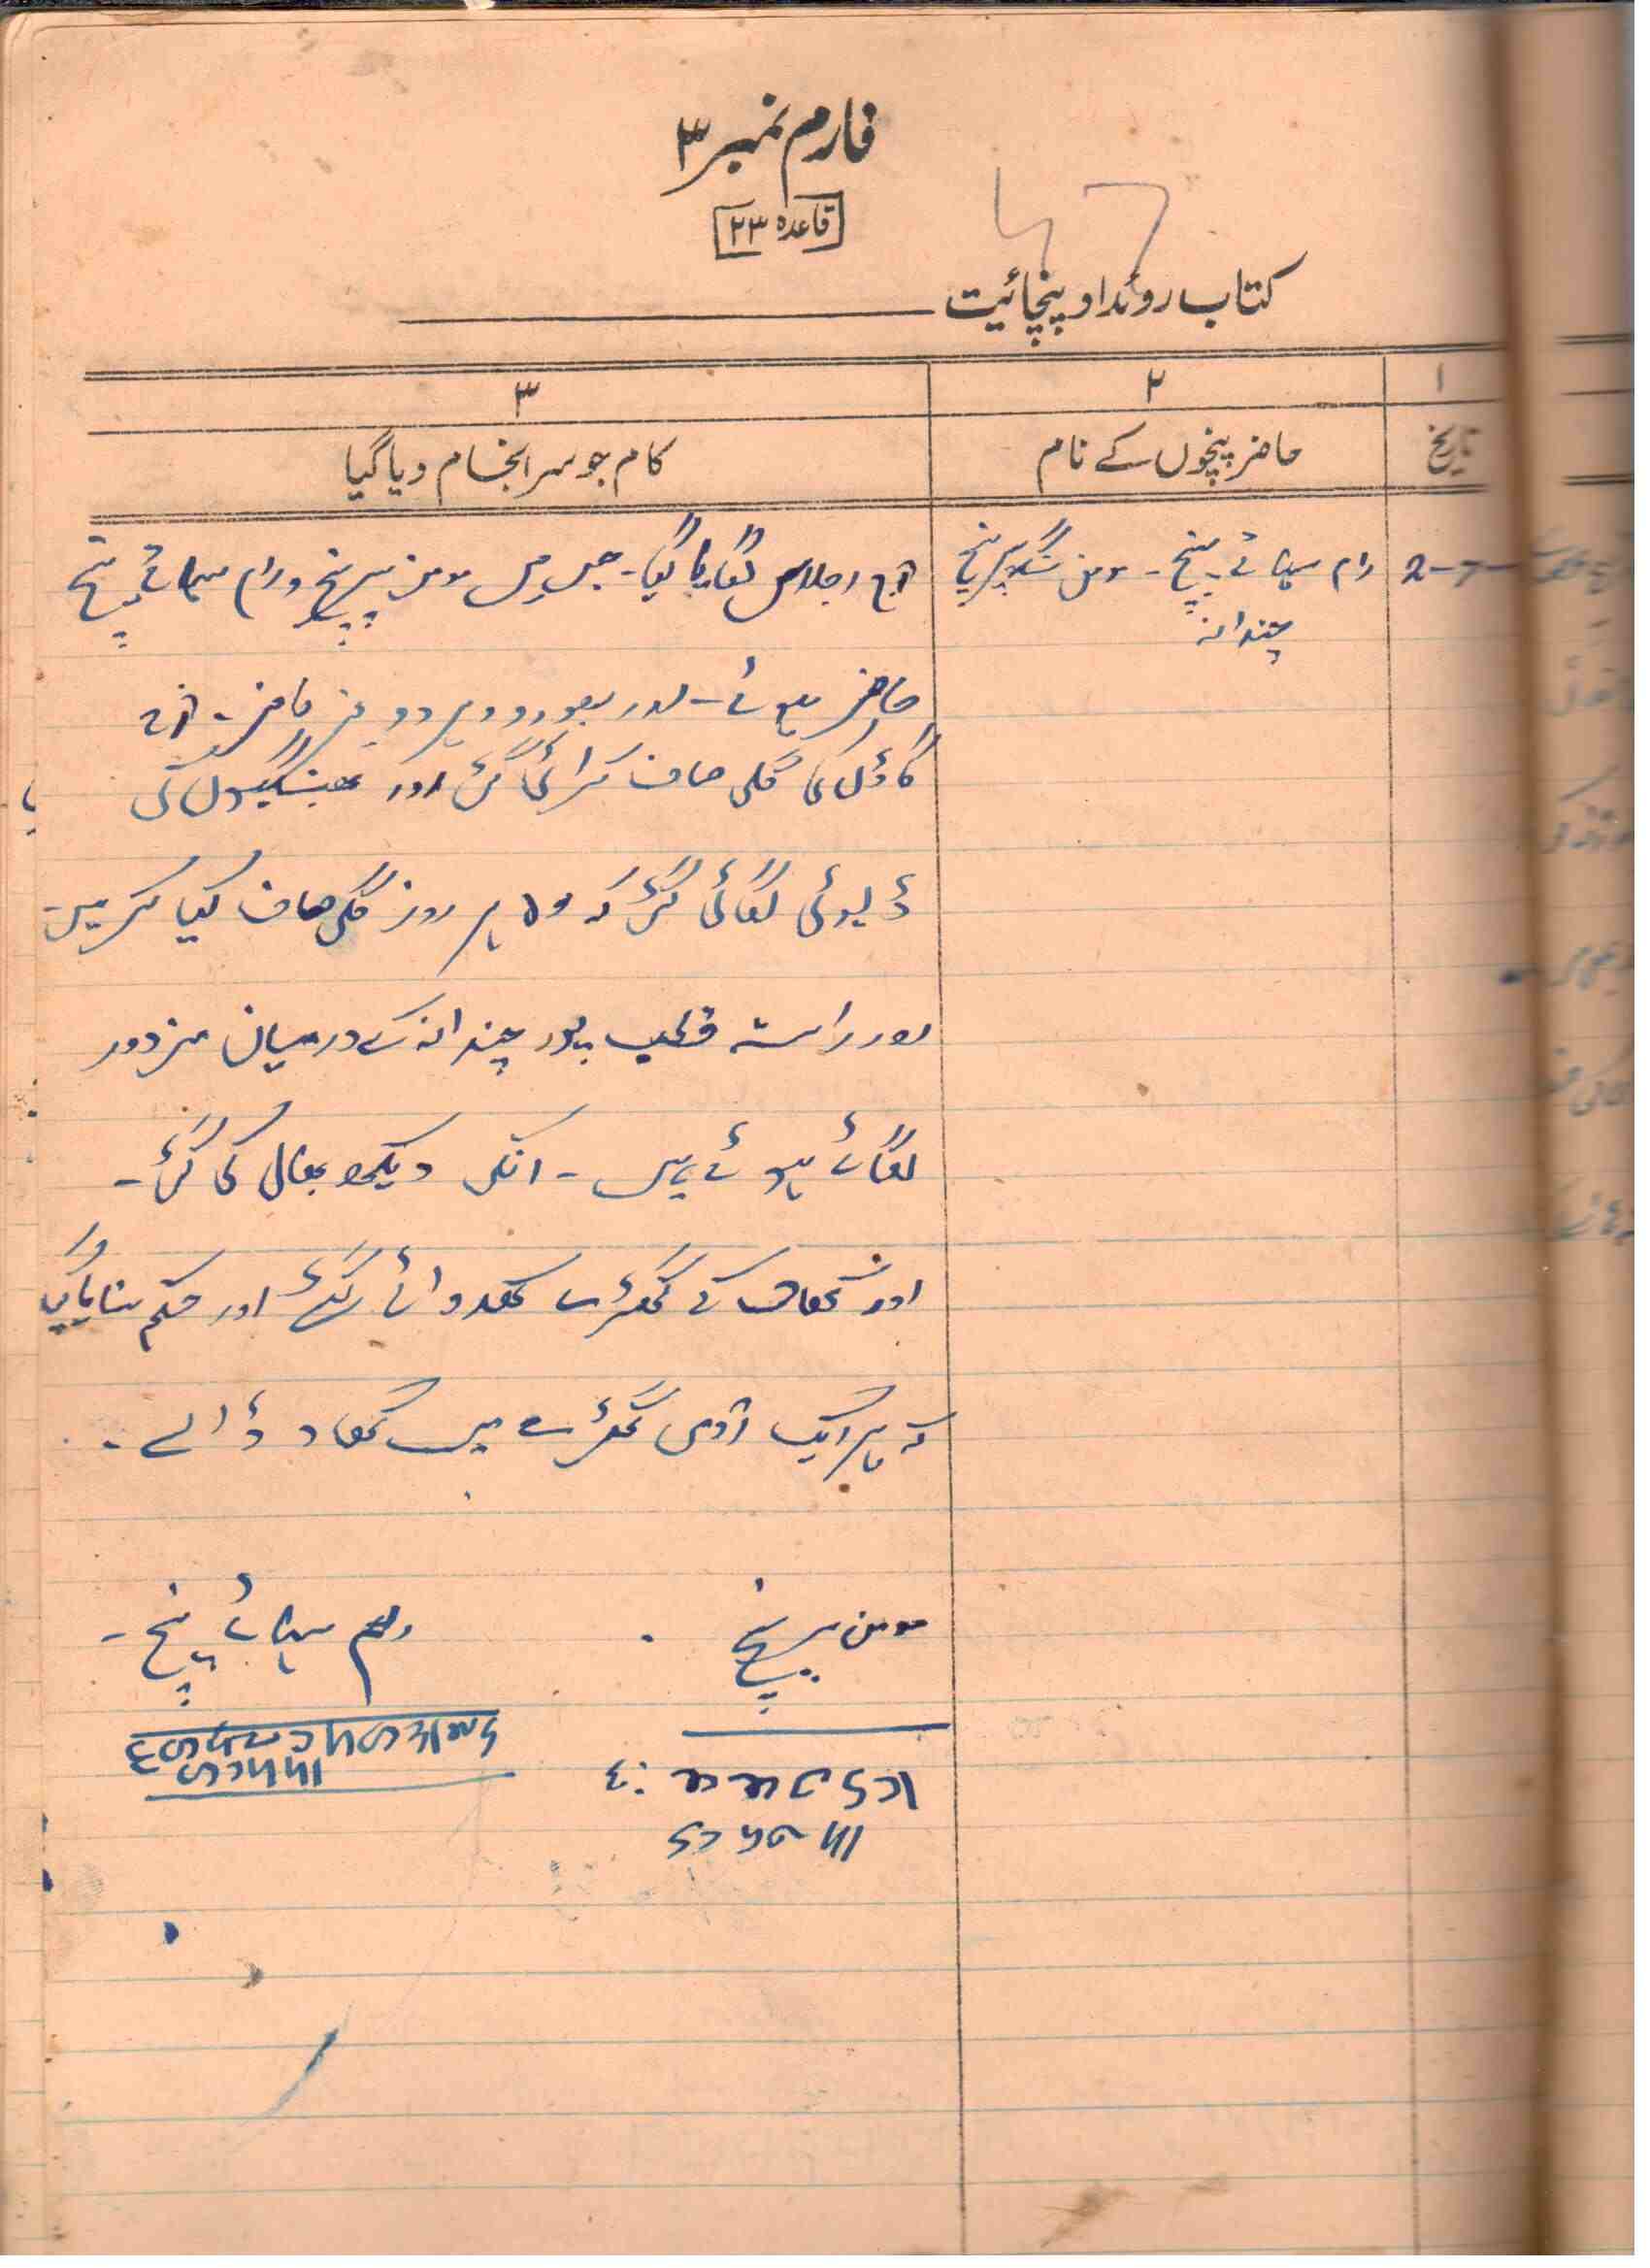 فارم نمبر ۳
قاعدہ ۲۳
47
کتاب روئداد پنچائیت
۱ ۲ ۳
تاریخ حاضر پنچوں کے نام کام جو سرانجام دیا گیا
رام سہائے پنچ - موہن سنگھ سرپنچ
چندانہ
آج اجلاس لگایا گیا - جس میں موہن سرپنچ و رام سہائے پنچ
حاضر ہوئے - اور
گاؤں کی گلی صاف کرائی گئی اور بھنگیوں کی
ڈیوٹی لگائی گئی کہ وہ ہر روز گلی صاف کیا کریں
اور راستہ قطب پور چندانہ کے درمیان مزدور
لگائے ہوئے ہیں - انکی دیکھ بھال کی گئی -
اور کھاد کے کھڑے کھدوائے گئے اور حکم سنایا گیا
کہ ہر ایک آدمی کھڑے میں کھاد ڈالے -
موہن سرپنچ رام سہائے پنچ -